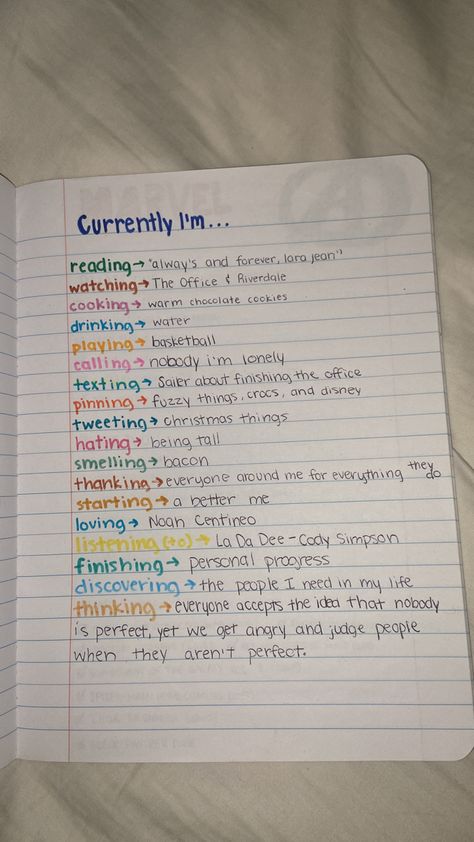 Currently I'm...
reading → "alway's and forever, lara jean"
watching → The Office & Riverdale
cooking → warm chocolate cookies
drinking → water
playing → basketball
calling → nobody i'm lonely
texting → Sailer about finishing the office
pinning → fuzzy things, crocs, and disney
tweeting → christmas things
hating → being tall
smelling → bacon
thanking → everyone around me for everything they do
starting → a better me
loving → Noah Centineo
listening (to) → La Da Dee - Cody Simpson
finishing → personal progress
discovering → the people I need in my life
thinking → everyone accepts the idea that nobody
is perfect, yet we get angry and judge people
when they aren't perfect.
MARVEL